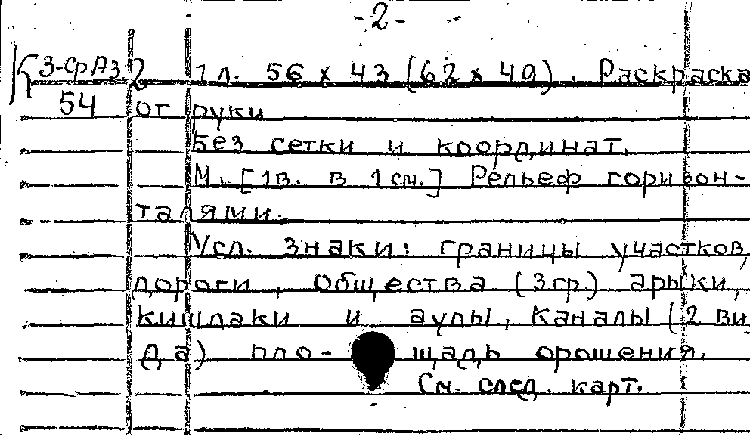 -2-
3-СрАз 2 1 л. 56 х 43 (62 х 49). Раскраска
54 от руки
Без сетки и координат.
М. [1в. в 1 см.] Рельеф горизон-
талями.
Усл. знаки: границы участков,
дороги, общества (3гр) арыки,
кишлаки и аулы, каналы (2 ви
да) пло- щадь орошения.
См. след. карт.